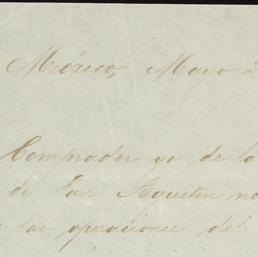 México, Mayo 2
Comprador yo de la
de San Agustin no
las operaciones del